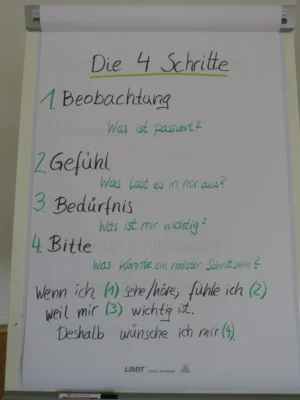 Die 4 Schritte
1. Beobachtung
Was ist passiert?
2. Gefühl
Was löst es in mir aus?
3. Bedürfnis
Was ist mir wichtig?
4. Bitte
Was könnte ein nächster Schritt sein?
Wenn ich (1) sehe/höre, fühle ich (2)
weil mir (3) wichtig ist.
Deshalb wünsche ich mir (4)
LIMIT